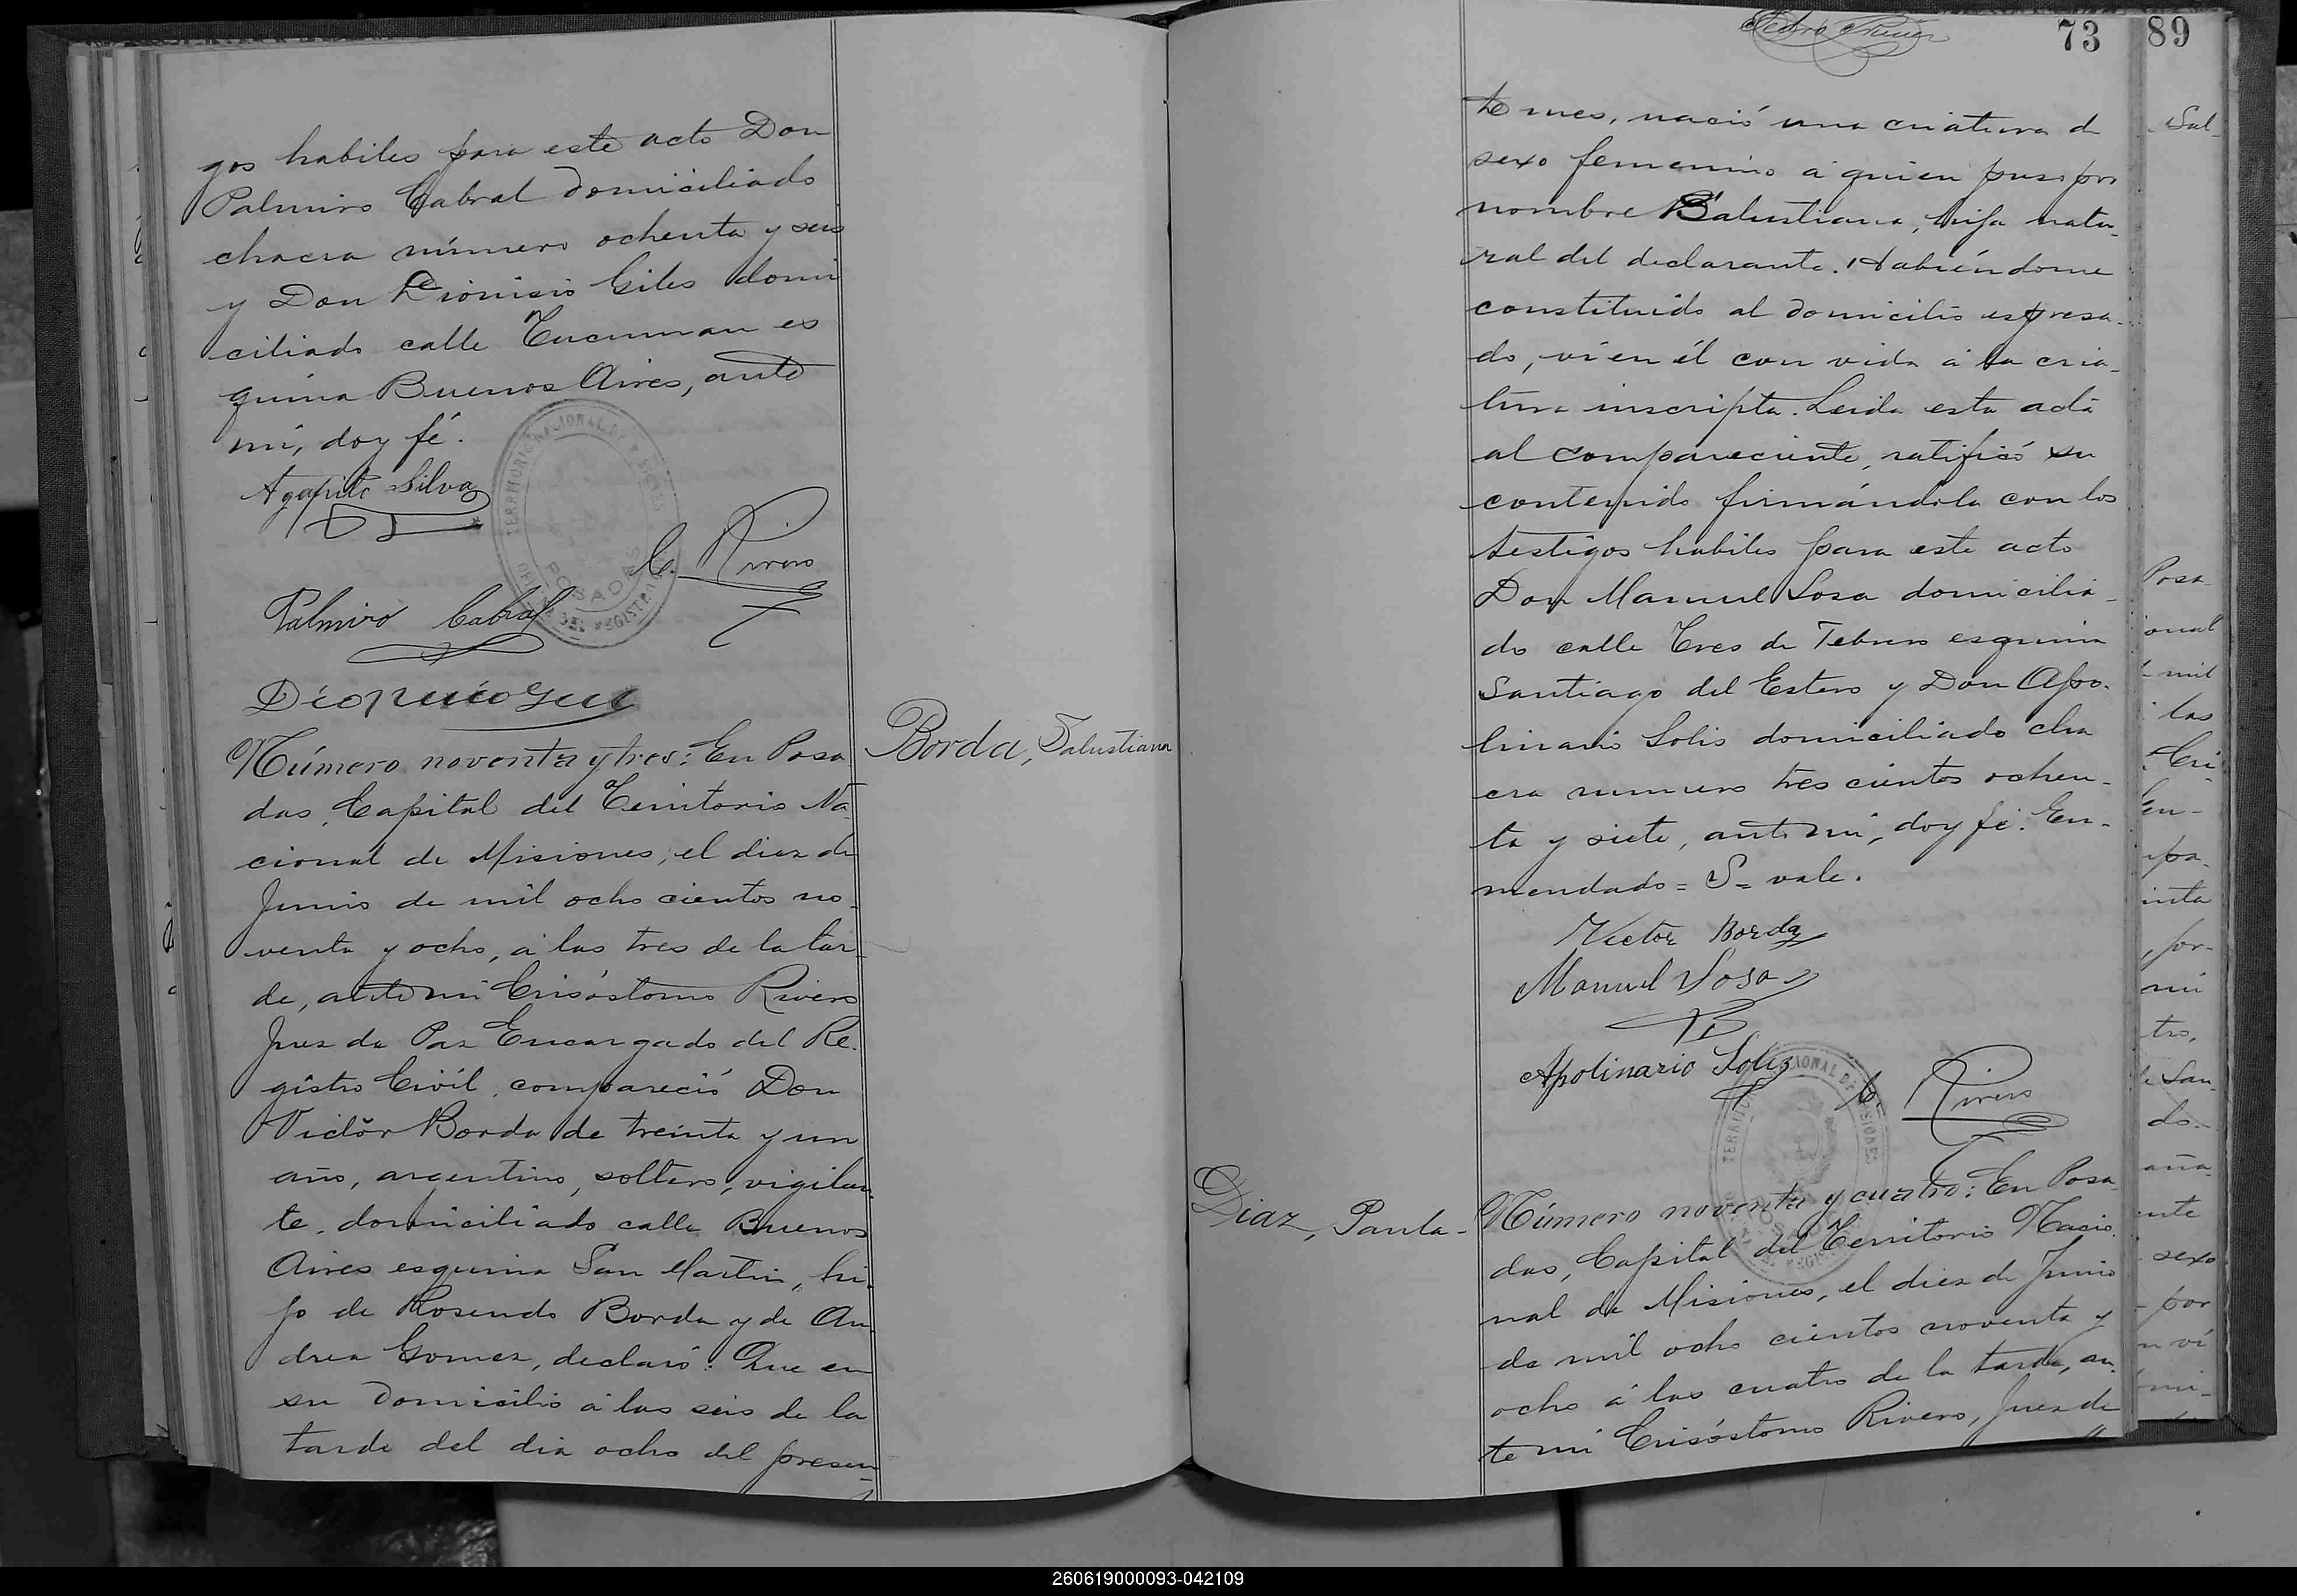 gos habiles para este acto Don
Palmiro Cabral domiciliado
chacra número ochenta y seis
y Don Dionisio Giles domi
ciliado calle Tucuman es
quina Buenos Aires, ante
mí, doy fé.
Agapito Silva
TERRITORIO NACIONAL DE MISIONES
POSADAS
C. Rivero
Palmiro Cabral
Número noventa y tres: En Posa
das, Capital del Territorio Na
cional de Misiones, el diez de
Junio de mil ocho cientos no-
venta y ocho, á las tres de la tar-
de, ante mi Crisóstomo Rivero
Juez de Paz Encargado del Re-
gistro Civil, compareció Don
Victor Borda de treinta y un
año, argentino, soltero, vigilan-
te, domiciliado calle Buenos
Aires esquina San Martin, hi-
jo de Rosendo Borda y de An-
drea Gomez, declaró: Que en
su domicilio á las seis de la
tarde del dia ocho del presen-
Borda, Salustiana
73
89
te mes, nació una criatura de
sexo femenino á quien puso por
nombre Salustiana, hija natu-
ral del declarante. Habiéndome
constituido al domicilio espresa-
do, ví en él con vida á la cria-
tura inscripta. Leida esta acta
al compareciente, ratificó su
contenido firmándola con los
testigos habiles para este acto
Don Manuel Sosa domicilia-
do calle Tres de Febrero esquina
Santiago del Estero y Don Apo-
linario Solis domiciliado cha
cra numero tres cientos ochen-
ta y siete, ante mí, doy fé. En-
mendado = S = vale.
Victor Borda
Manuel Sosa
Apolinario Soliz
C. Rivero
Diaz, Paula-
Número noventa y cuatro: En Posa
das, Capital del Territorio Nacio
nal de Misiones, el diez de Junio
de mil ocho cientos noventa y
ocho á las cuatro de la tarde, an-
te mi Crisóstomo Rivero, Juez de
260619000093-042109